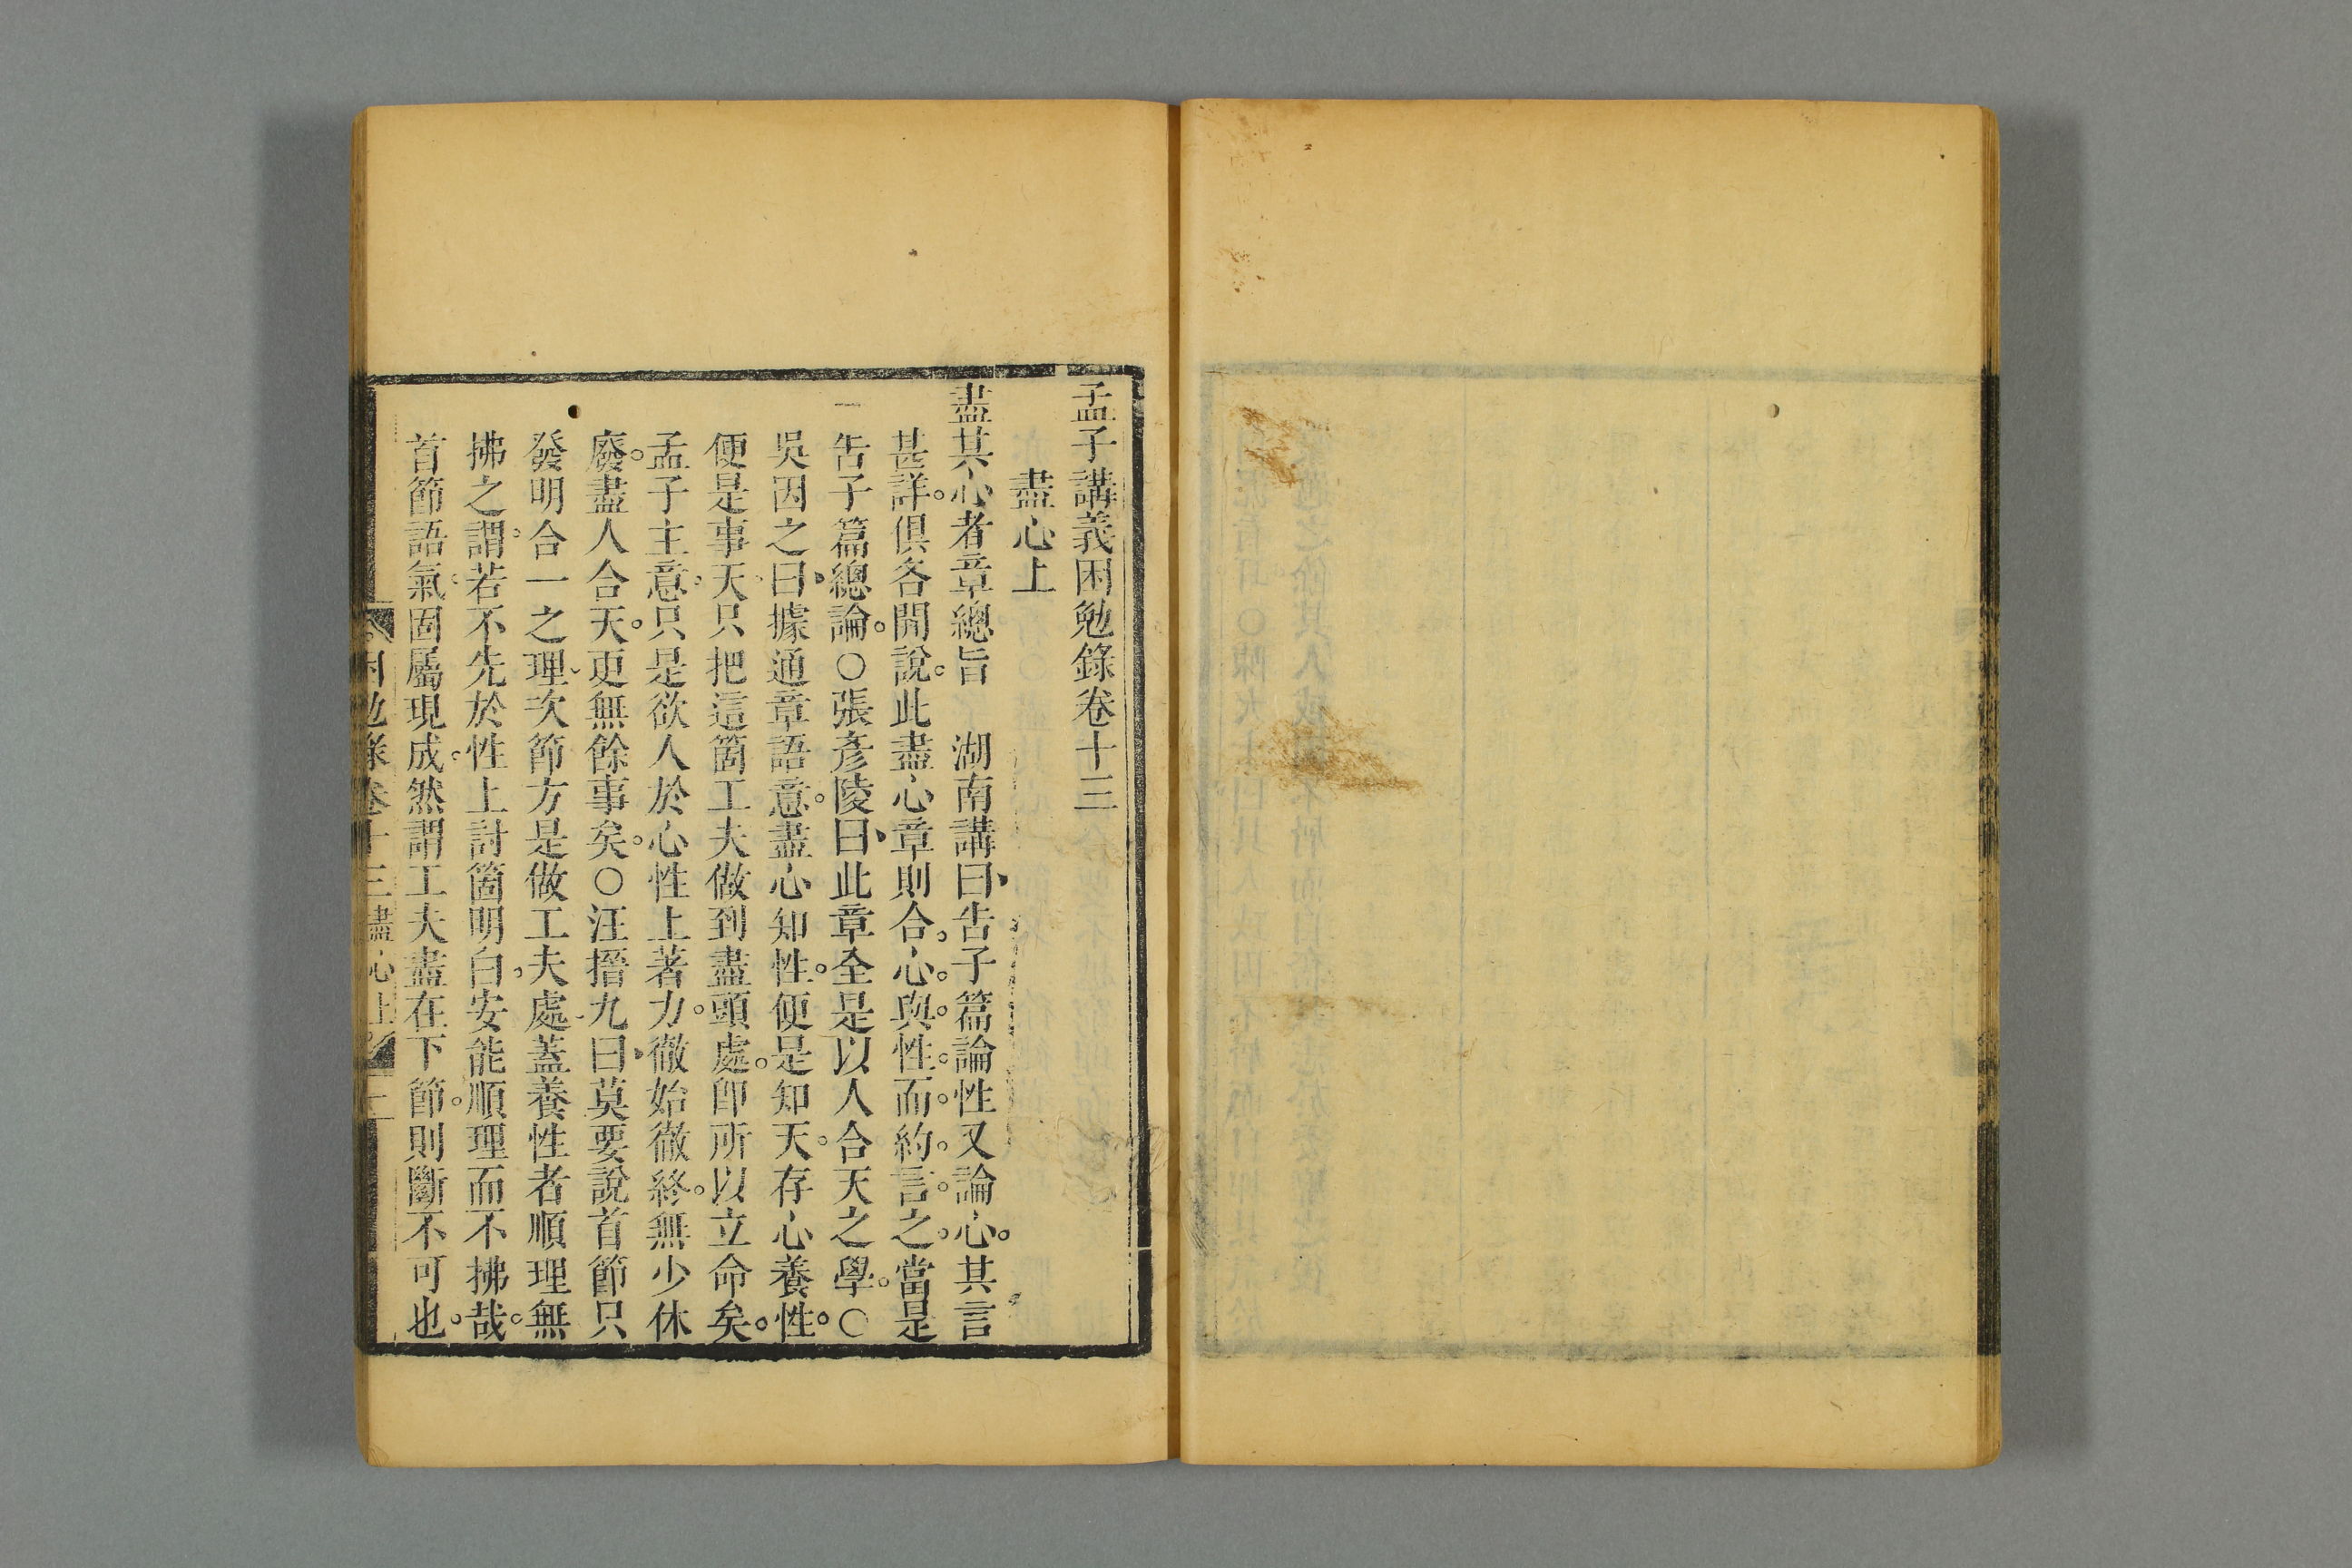 孟子講義困勉錄卷十三
盡心上
盡其心者章總旨　湖南講曰告子篇論性又論心。其言
甚詳。俱各開說。此盡心章則合心。與。性。而。約。言。之。當是
告子篇總論。○張彥陵曰此章全是以人合天之學。○
吳因之曰據通章語意。盡心知性。便是知天。存心養性。
便是事天。只把這箇工夫做到盡頭處。卽所以立命矣。
孟子主意。只是欲人於心性上著力。徹始徹終。無少休
廢。盡人合天。更無餘事矣。○汪搢九曰莫要說首節只
發明合一之理、次節方是做工夫處、蓋養性者順理無
拂之謂。若不先於性上討箇明白、安能順理而不拂哉。
首節語氣。固屬現成。然謂工夫盡在下節。則斷不可也。
困勉錄卷十三 盡心上